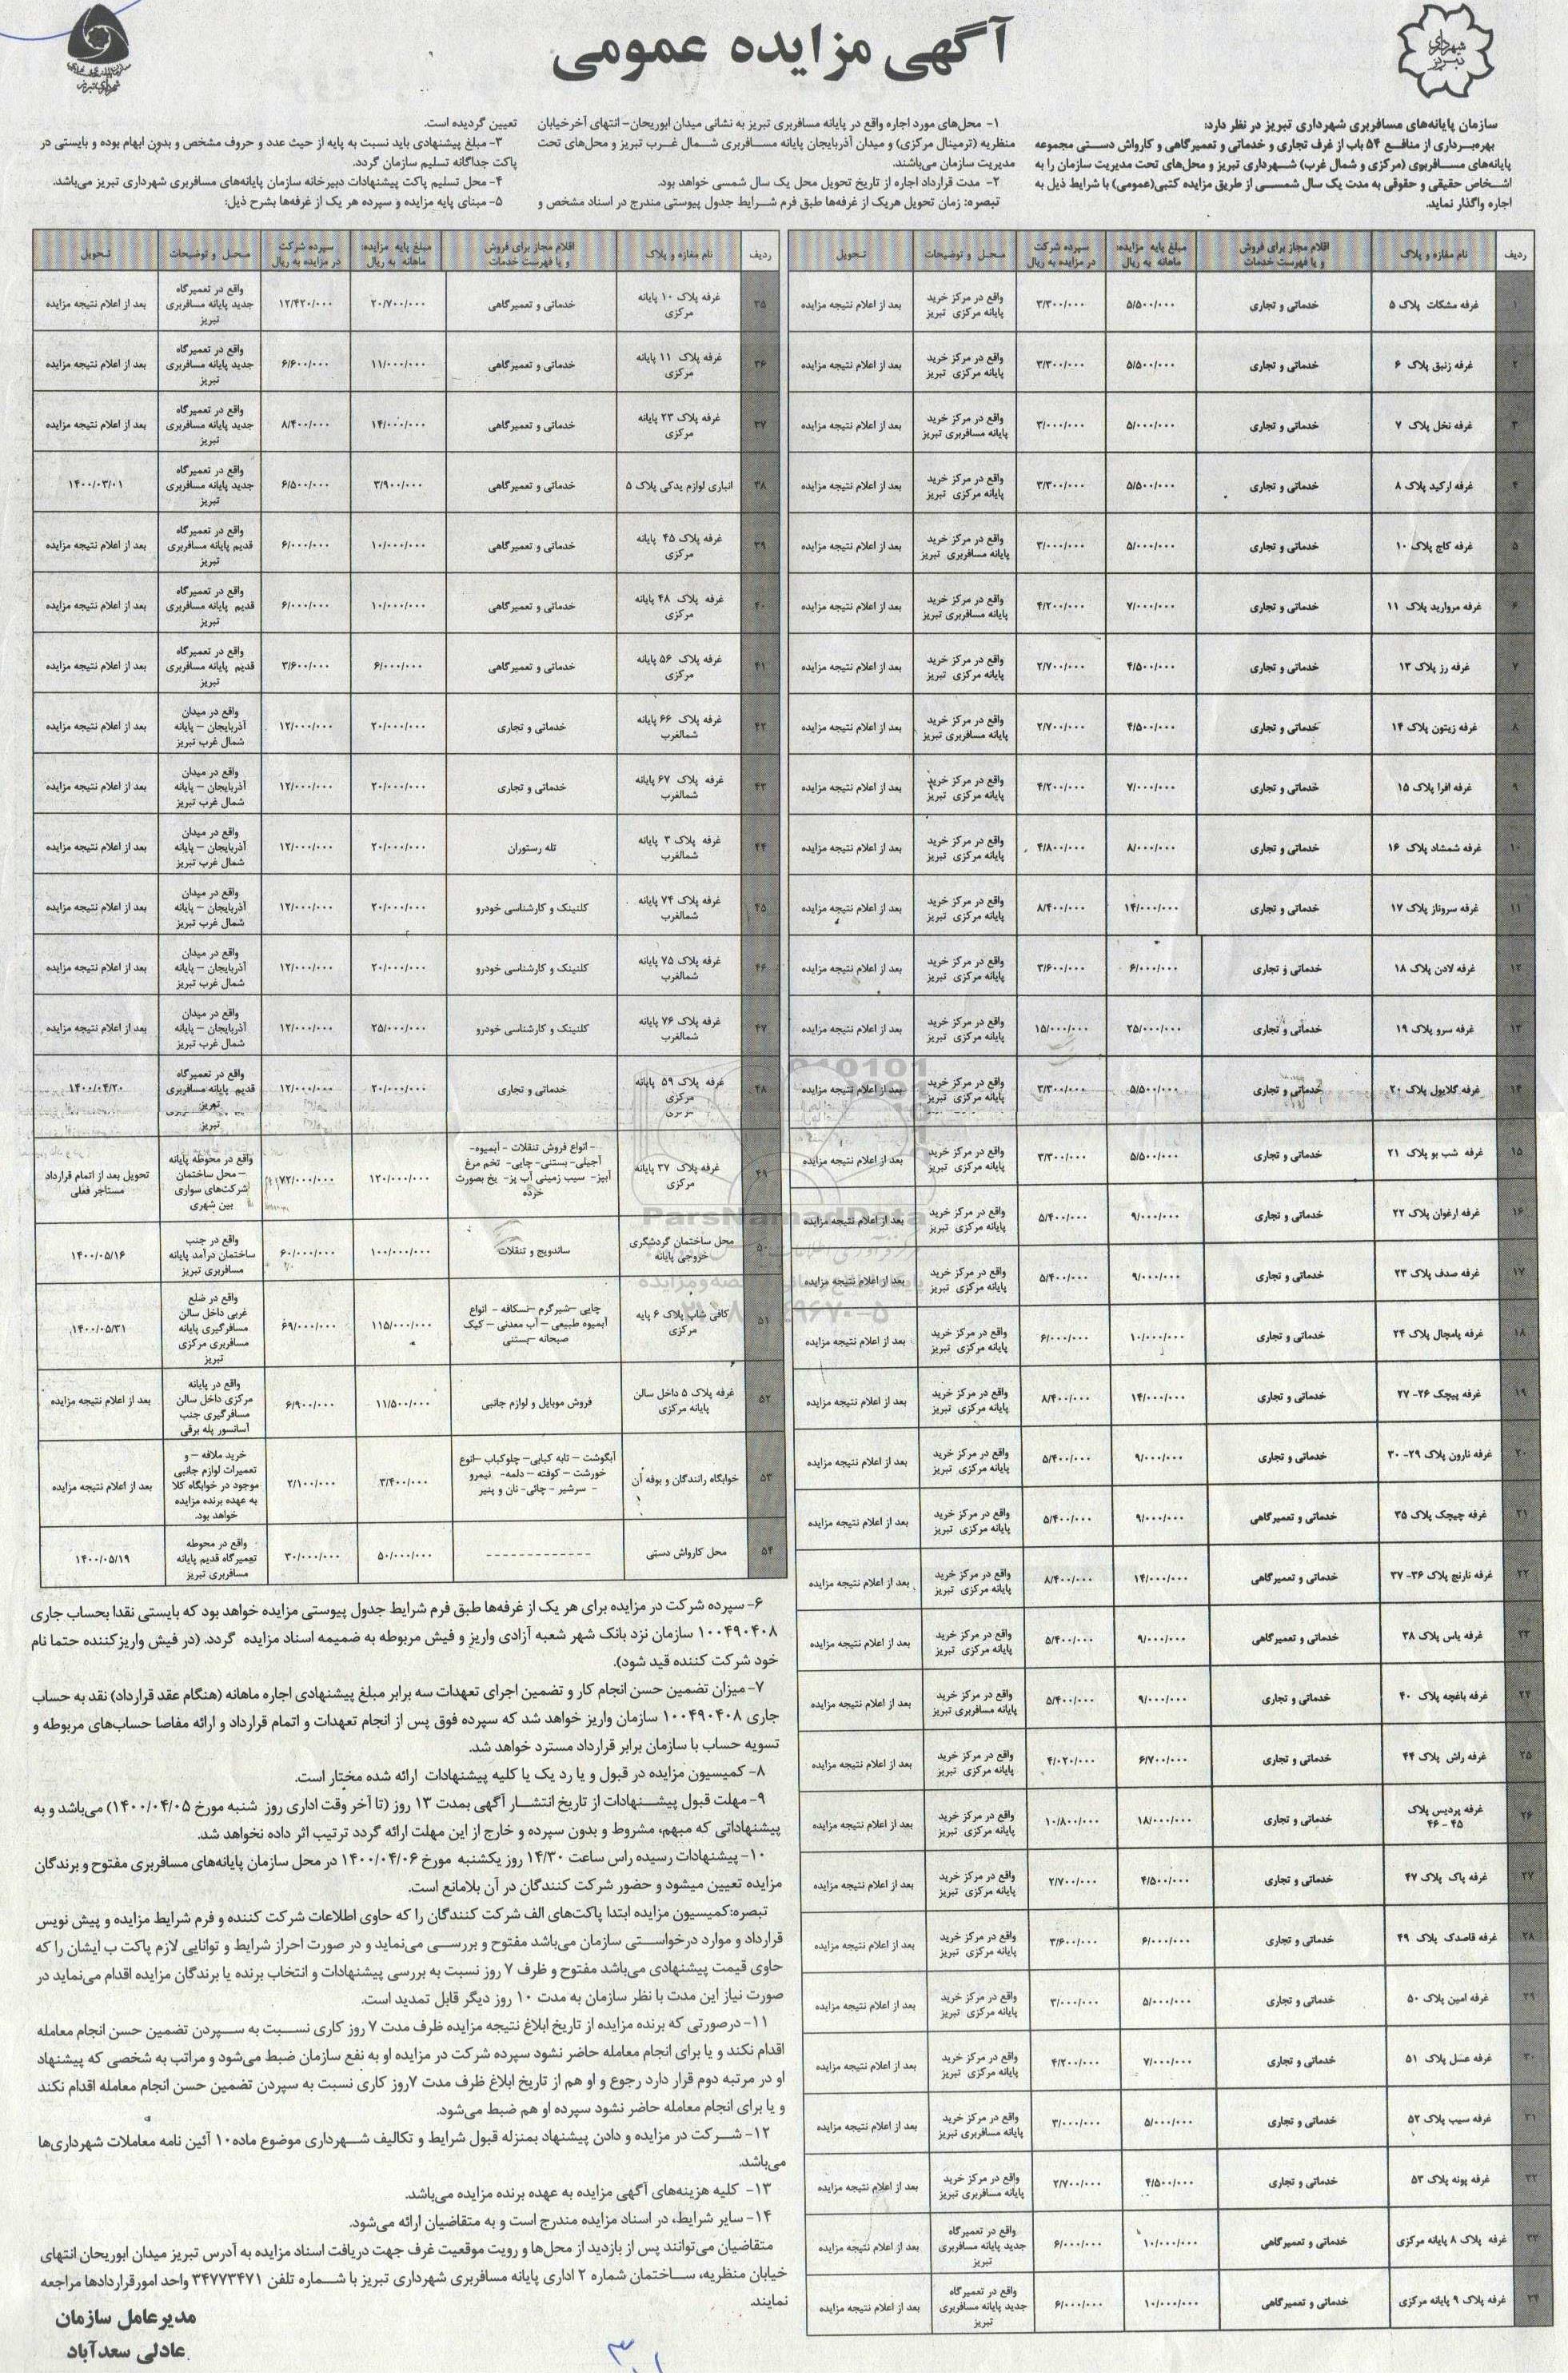 آگهی مزایده عمومی
شهرداری تبریز
سازمان پایانه‌های مسافربری شهرداری تبریز در نظر دارد:
بهره‌برداری از منافع ۵۴ باب از غرف تجاری و خدماتی و تعمیرگاهی و کارواش دستی مجموعه
پایانه‌های مسافربوی (مرکزی و شمال غرب) شهرداری تبریز و محل‌های تحت مدیریت سازمان را به
اشخاص حقیقی و حقوقی به مدت یک سال شمسی از طریق مزایده کتبی(عمومی) با شرایط ذیل به
اجاره واگذار نماید.
۱- محل‌های مورد اجاره واقع در پایانه مسافربری تبریز به نشانی میدان ابوریحان- انتهای آخرخیابان
منظریه (ترمینال مرکزی) و میدان آذربایجان پایانه مسافربری شمال غرب تبریز و محل‌های تحت
مدیریت سازمان می‌باشند.
۲- مدت قرارداد اجاره از تاریخ تحویل محل یک سال شمسی خواهد بود.
تبصره: زمان تحویل هریک از غرفه‌ها طبق فرم شرایط جدول پیوستی مندرج در اسناد مشخص و
تعیین گردیده است.
۳- مبلغ پیشنهادی باید نسبت به پایه از حیث عدد و حروف مشخص و بدون ابهام بوده و بایستی در
پاکت جداگانه تسلیم سازمان گردد.
۴- محل تسلیم پاکت پیشنهادات دبیرخانه سازمان پایانه‌های مسافربری شهرداری تبریز می‌باشد.
۵- مبنای پایه مزایده و سپرده هر یک از غرفه‌ها بشرح ذیل:
ردیف نام مغازه و پلاک اقلام مجاز برای فروش و یا فهرست خدمات مبلغ پایه مزایده: ماهانه به ریال سپرده شرکت در مزایده به ریال محل و توضیحات تحویل
۱ غرفه مشکات پلاک ۵ خدماتی و تجاری ۵/۵۰۰/۰۰۰ ۳/۳۰۰/۰۰۰ واقع در مرکز خرید پایانه مرکزی تبریز بعد از اعلام نتیجه مزایده
۲ غرفه زنبق پلاک ۶ خدماتی و تجاری ۵/۵۰۰/۰۰۰ ۳/۳۰۰/۰۰۰ واقع در مرکز خرید پایانه مرکزی تبریز بعد از اعلام نتیجه مزایده
۳ غرفه نخل پلاک ۷ خدماتی و تجاری ۵/۰۰۰/۰۰۰ ۳/۰۰۰/۰۰۰ واقع در مرکز خرید پایانه مسافربری تبریز بعد از اعلام نتیجه مزایده
۴ غرفه ارکید پلاک ۸ خدماتی و تجاری ۵/۵۰۰/۰۰۰ ۳/۳۰۰/۰۰۰ واقع در مرکز خرید پایانه مرکزی تبریز بعد از اعلام نتیجه مزایده
۵ غرفه کاج پلاک ۱۰ خدماتی و تجاری ۵/۰۰۰/۰۰۰ ۳/۰۰۰/۰۰۰ واقع در مرکز خرید پایانه مسافربری تبریز بعد از اعلام نتیجه مزایده
۶ غرفه مروارید پلاک ۱۱ خدماتی و تجاری ۷/۰۰۰/۰۰۰ ۴/۲۰۰/۰۰۰ واقع در مرکز خرید پایانه مسافربری تبریز بعد از اعلام نتیجه مزایده
۷ غرفه رز پلاک ۱۳ خدماتی و تجاری ۴/۵۰۰/۰۰۰ ۲/۷۰۰/۰۰۰ واقع در مرکز خرید پایانه مرکزی تبریز بعد از اعلام نتیجه مزایده
۸ غرفه زیتون پلاک ۱۴ خدماتی و تجاری ۴/۵۰۰/۰۰۰ ۲/۷۰۰/۰۰۰ واقع در مرکز خرید پایانه مسافربری تبریز بعد از اعلام نتیجه مزایده
۹ غرفه افرا پلاک ۱۵ خدماتی و تجاری ۷/۰۰۰/۰۰۰ ۴/۲۰۰/۰۰۰ واقع در مرکز خرید پایانه مرکزی تبریز بعد از اعلام نتیجه مزایده
۱۰ غرفه شمشاد پلاک ۱۶ خدماتی و تجاری ۸/۰۰۰/۰۰۰ ۴/۸۰۰/۰۰۰ واقع در مرکز خرید پایانه مرکزی تبریز بعد از اعلام نتیجه مزایده
۱۱ غرفه سروناز پلاک ۱۷ خدماتی و تجاری ۱۴/۰۰۰/۰۰۰ ۸/۴۰۰/۰۰۰ واقع در مرکز خرید پایانه مرکزی تبریز بعد از اعلام نتیجه مزایده
۱۲ غرفه لادن پلاک ۱۸ خدماتی و تجاری ۶/۰۰۰/۰۰۰ ۳/۶۰۰/۰۰۰ واقع در مرکز خرید پایانه مرکزی تبریز بعد از اعلام نتیجه مزایده
۱۳ غرفه سرو پلاک ۱۹ خدماتی و تجاری ۲۵/۰۰۰/۰۰۰ ۱۵/۰۰۰/۰۰۰ واقع در مرکز خرید پایانه مرکزی تبریز بعد از اعلام نتیجه مزایده
۱۴ غرفه گلایول پلاک ۲۰ خدماتی و تجاری ۵/۵۰۰/۰۰۰ ۳/۳۰۰/۰۰۰ واقع در مرکز خرید پایانه مرکزی تبریز بعد از اعلام نتیجه مزایده
۱۵ غرفه شب بو پلاک ۲۱ خدماتی و تجاری ۵/۵۰۰/۰۰۰ ۳/۳۰۰/۰۰۰ واقع در مرکز خرید پایانه مرکزی تبریز بعد از اعلام نتیجه مزایده
۱۶ غرفه ارغوان پلاک ۲۲ خدماتی و تجاری ۹/۰۰۰/۰۰۰ ۵/۴۰۰/۰۰۰ واقع در مرکز خرید پایانه مرکزی تبریز بعد از اعلام نتیجه مزایده
۱۷ غرفه صدف پلاک ۲۳ خدماتی و تجاری ۹/۰۰۰/۰۰۰ ۵/۴۰۰/۰۰۰ واقع در مرکز خرید پایانه مرکزی تبریز بعد از اعلام نتیجه مزایده
۱۸ غرفه پامچال پلاک ۲۴ خدماتی و تجاری ۱۰/۰۰۰/۰۰۰ ۶/۰۰۰/۰۰۰ واقع در مرکز خرید پایانه مرکزی تبریز بعد از اعلام نتیجه مزایده
۱۹ غرفه پیچک ۲۶- ۲۷ خدماتی و تجاری ۱۴/۰۰۰/۰۰۰ ۸/۴۰۰/۰۰۰ واقع در مرکز خرید پایانه مرکزی تبریز بعد از اعلام نتیجه مزایده
۲۰ غرفه نارون پلاک ۲۹- ۳۰ خدماتی و تجاری ۹/۰۰۰/۰۰۰ ۵/۴۰۰/۰۰۰ واقع در مرکز خرید پایانه مرکزی تبریز بعد از اعلام نتیجه مزایده
۲۱ غرفه چیچک پلاک ۳۵ خدماتی و تعمیرگاهی ۹/۰۰۰/۰۰۰ ۵/۴۰۰/۰۰۰ واقع در مرکز خرید پایانه مرکزی تبریز بعد از اعلام نتیجه مزایده
۲۲ غرفه نارنج پلاک ۳۶- ۳۷ خدماتی و تعمیرگاهی ۱۴/۰۰۰/۰۰۰ ۸/۴۰۰/۰۰۰ واقع در مرکز خرید پایانه مرکزی تبریز بعد از اعلام نتیجه مزایده
۲۳ غرفه یاس پلاک ۳۸ خدماتی و تعمیرگاهی ۹/۰۰۰/۰۰۰ ۵/۴۰۰/۰۰۰ واقع در مرکز خرید پایانه مرکزی تبریز بعد از اعلام نتیجه مزایده
۲۴ غرفه باغچه پلاک ۴۰ خدماتی و تجاری ۹/۰۰۰/۰۰۰ ۵/۴۰۰/۰۰۰ واقع در مرکز خرید پایانه مسافربری تبریز بعد از اعلام نتیجه مزایده
۲۵ غرفه راش پلاک ۴۴ خدماتی و تجاری ۶/۷۰۰/۰۰۰ ۴/۰۲۰/۰۰۰ واقع در مرکز خرید پایانه مرکزی تبریز بعد از اعلام نتیجه مزایده
۲۶ غرفه پردیس پلاک ۴۵ - ۴۶ خدماتی و تجاری ۱۸/۰۰۰/۰۰۰ ۱۰/۸۰۰/۰۰۰ واقع در مرکز خرید پایانه مرکزی تبریز بعد از اعلام نتیجه مزایده
۲۷ غرفه پاک پلاک ۴۷ خدماتی و تجاری ۴/۵۰۰/۰۰۰ ۲/۷۰۰/۰۰۰ واقع در مرکز خرید پایانه مرکزی تبریز بعد از اعلام نتیجه مزایده
۲۸ غرفه قاصدک پلاک ۴۹ خدماتی و تجاری ۶/۰۰۰/۰۰۰ ۳/۶۰۰/۰۰۰ واقع در مرکز خرید پایانه مرکزی تبریز بعد از اعلام نتیجه مزایده
۲۹ غرفه امین پلاک ۵۰ خدماتی و تجاری ۵/۰۰۰/۰۰۰ ۳/۰۰۰/۰۰۰ واقع در مرکز خرید پایانه مرکزی تبریز بعد از اعلام نتیجه مزایده
۳۰ غرفه عسل پلاک ۵۱ خدماتی و تجاری ۷/۰۰۰/۰۰۰ ۴/۲۰۰/۰۰۰ واقع در مرکز خرید پایانه مرکزی تبریز بعد از اعلام نتیجه مزایده
۳۱ غرفه سیب پلاک ۵۲ خدماتی و تجاری ۵/۰۰۰/۰۰۰ ۳/۰۰۰/۰۰۰ واقع در مرکز خرید پایانه مسافربری تبریز بعد از اعلام نتیجه مزایده
۳۲ غرفه پونه پلاک ۵۳ خدماتی و تجاری ۴/۵۰۰/۰۰۰ ۲/۷۰۰/۰۰۰ واقع در مرکز خرید پایانه مسافربری تبریز بعد از اعلام نتیجه مزایده
۳۳ غرفه پلاک ۸ پایانه مرکزی خدماتی و تعمیرگاهی ۱۰/۰۰۰/۰۰۰ ۶/۰۰۰/۰۰۰ واقع در تعمیرگاه جدید پایانه مسافربری تبریز بعد از اعلام نتیجه مزایده
۳۴ غرفه پلاک ۹ پایانه مرکزی خدماتی و تعمیرگاهی ۱۰/۰۰۰/۰۰۰ ۶/۰۰۰/۰۰۰ واقع در تعمیرگاه جدید پایانه مسافربری تبریز بعد از اعلام نتیجه مزایده
ردیف نام مغازه و پلاک اقلام مجاز برای فروش و یا فهرست خدمات مبلغ پایه مزایده: ماهانه به ریال سپرده شرکت در مزایده به ریال محل و توضیحات تحویل
۳۵ غرفه پلاک ۱۰ پایانه مرکزی خدماتی و تعمیرگاهی ۲۰/۷۰۰/۰۰۰ ۱۲/۴۲۰/۰۰۰ واقع در تعمیرگاه جدید پایانه مسافربری تبریز بعد از اعلام نتیجه مزایده
۳۶ غرفه پلاک ۱۱ پایانه مرکزی خدماتی و تعمیرگاهی ۱۱/۰۰۰/۰۰۰ ۶/۶۰۰/۰۰۰ واقع در تعمیرگاه جدید پایانه مسافربری تبریز بعد از اعلام نتیجه مزایده
۳۷ غرفه پلاک ۲۳ پایانه مرکزی خدماتی و تعمیرگاهی ۱۴/۰۰۰/۰۰۰ ۸/۴۰۰/۰۰۰ واقع در تعمیرگاه جدید پایانه مسافربری تبریز بعد از اعلام نتیجه مزایده
۳۸ انباری لوازم یدکی پلاک ۵ خدماتی و تعمیرگاهی ۳/۹۰۰/۰۰۰ ۶/۵۰۰/۰۰۰ واقع در تعمیرگاه جدید پایانه مسافربری تبریز ۱۴۰۰/۰۳/۰۱
۳۹ غرفه پلاک ۴۵ پایانه مرکزی خدماتی و تعمیرگاهی ۱۰/۰۰۰/۰۰۰ ۶/۰۰۰/۰۰۰ واقع در تعمیرگاه قدیم پایانه مسافربری تبریز بعد از اعلام نتیجه مزایده
۴۰ غرفه پلاک ۴۸ پایانه مرکزی خدماتی و تعمیرگاهی ۱۰/۰۰۰/۰۰۰ ۶/۰۰۰/۰۰۰ واقع در تعمیرگاه قدیم پایانه مسافربری تبریز بعد از اعلام نتیجه مزایده
۴۱ غرفه پلاک ۵۶ پایانه مرکزی خدماتی و تعمیرگاهی ۶/۰۰۰/۰۰۰ ۳/۶۰۰/۰۰۰ واقع در تعمیرگاه قدیم پایانه مسافربری تبریز بعد از اعلام نتیجه مزایده
۴۲ غرفه پلاک ۶۶ پایانه شمالغرب خدماتی و تجاری ۲۰/۰۰۰/۰۰۰ ۱۲/۰۰۰/۰۰۰ واقع در میدان آذربایجان – پایانه شمال غرب تبریز بعد از اعلام نتیجه مزایده
۴۳ غرفه پلاک ۶۷ پایانه شمالغرب خدماتی و تجاری ۲۰/۰۰۰/۰۰۰ ۱۲/۰۰۰/۰۰۰ واقع در میدان آذربایجان – پایانه شمال غرب تبریز بعد از اعلام نتیجه مزایده
۴۴ غرفه پلاک ۳ پایانه شمالغرب تله رستوران ۲۰/۰۰۰/۰۰۰ ۱۲/۰۰۰/۰۰۰ واقع در میدان آذربایجان – پایانه شمال غرب تبریز بعد از اعلام نتیجه مزایده
۴۵ غرفه پلاک ۷۴ پایانه شمالغرب کلنینک و کارشناسی خودرو ۲۰/۰۰۰/۰۰۰ ۱۲/۰۰۰/۰۰۰ واقع در میدان آذربایجان – پایانه شمال غرب تبریز بعد از اعلام نتیجه مزایده
۴۶ غرفه پلاک ۷۵ پایانه شمالغرب کلنینک و کارشناسی خودرو ۲۰/۰۰۰/۰۰۰ ۱۲/۰۰۰/۰۰۰ واقع در میدان آذربایجان – پایانه شمال غرب تبریز بعد از اعلام نتیجه مزایده
۴۷ غرفه پلاک ۷۶ پایانه شمالغرب کلنینک و کارشناسی خودرو ۲۵/۰۰۰/۰۰۰ ۱۲/۰۰۰/۰۰۰ واقع در میدان آذربایجان – پایانه شمال غرب تبریز بعد از اعلام نتیجه مزایده
۴۸ غرفه پلاک ۵۹ پایانه مرکزی خدماتی و تجاری ۲۰/۰۰۰/۰۰۰ ۱۲/۰۰۰/۰۰۰ واقع در تعمیرگاه قدیم پایانه مسافربری تبریز ۱۴۰۰/۰۴/۲۰
۴۹ غرفه پلاک ۳۷ پایانه مرکزی - انواع فروش تنقلات - آبمیوه- آجیلی- بستنی- چایی- تخم مرغ آبپز- سیب زمینی آب پز- یخ بصورت خرده ۱۲۰/۰۰۰/۰۰۰ ۷۲/۰۰۰/۰۰۰ واقع در محوطه پایانه – محل ساختمان شرکت‌های سواری بین شهری تحویل بعد از اتمام قرارداد مستاجر فعلی
۵۰ محل ساختمان گردشگری خروجی پایانه ساندویچ و تنقلات ۱۰۰/۰۰۰/۰۰۰ ۶۰/۰۰۰/۰۰۰ واقع در جنب ساختمان درآمد پایانه مسافربری تبریز ۱۴۰۰/۰۵/۱۶
۵۱ کافی شاپ پلاک ۶ پایه مرکزی چایی –شیرگرم –نسکافه - انواع آبمیوه طبیعی – آب معدنی – کیک صبحانه –بستنی ۱۱۵/۰۰۰/۰۰۰ ۶۹/۰۰۰/۰۰۰ واقع در ضلع غربی داخل سالن مسافرگیری پایانه مسافربری مرکزی تبریز ۱۴۰۰/۰۵/۳۱
۵۲ غرفه پلاک ۵ داخل سالن پایانه مرکزی فروش موبایل و لوازم جانبی ۱۱/۵۰۰/۰۰۰ ۶/۹۰۰/۰۰۰ واقع در پایانه مرکزی داخل سالن مسافرگیری جنب آسانسور پله برقی بعد از اعلام نتیجه مزایده
۵۳ خوابگاه رانندگان و بوفه آن آبگوشت – تابه کبابی – چلوکباب –انوع خورشت – کوفته – دلمه- نیمرو - سرشیر - چائی- نان و پنیر ۳/۴۰۰/۰۰۰ ۲/۱۰۰/۰۰۰ خرید ملافه – و تعمیرات لوازم جانبی موجود در خوابگاه کلا به عهده برنده مزایده خواهد بود. بعد از اعلام نتیجه مزایده
۵۴ محل کارواش دستی ------------- ۵۰/۰۰۰/۰۰۰ ۳۰/۰۰۰/۰۰۰ واقع در محوطه تعمیرگاه قدیم پایانه مسافربری تبریز ۱۴۰۰/۰۵/۱۹
ParsNamadData
۶- سپرده شرکت در مزایده برای هر یک از غرفه‌ها طبق فرم شرایط جدول پیوستی مزایده خواهد بود که بایستی نقدا بحساب جاری
۱۰۰۴۹۰۴۰۸ سازمان نزد بانک شهر شعبه آزادی واریز و فیش مربوطه به ضمیمه اسناد مزایده گردد. (در فیش واریزکننده حتما نام
خود شرکت کننده قید شود).
۷- میزان تضمین حسن انجام کار و تضمین اجرای تعهدات سه برابر مبلغ پیشنهادی اجاره ماهانه (هنگام عقد قرارداد) نقد به حساب
جاری ۱۰۰۴۹۰۴۰۸ سازمان واریز خواهد شد که سپرده فوق پس از انجام تعهدات و اتمام قرارداد و ارائه مفاصا حساب‌های مربوطه و
تسویه حساب با سازمان برابر قرارداد مسترد خواهد شد.
۸- کمیسیون مزایده در قبول و یا رد یک یا کلیه پیشنهادات ارائه شده مختار است.
۹- مهلت قبول پیشنهادات از تاریخ انتشار آگهی بمدت ۱۳ روز (تا آخر وقت اداری روز شنبه مورخ ۱۴۰۰/۰۴/۰۵) می‌باشد و به
پیشنهاداتی که مبهم، مشروط و بدون سپرده و خارج از این مهلت ارائه گردد ترتیب اثر داده نخواهد شد.
۱۰- پیشنهادات رسیده راس ساعت ۱۴/۳۰ روز یکشنبه مورخ ۱۴۰۰/۰۴/۰۶ در محل سازمان پایانه‌های مسافربری مفتوح و برندگان
مزایده تعیین میشود و حضور شرکت کنندگان در آن بلامانع است.
تبصره:کمیسیون مزایده ابتدا پاکت‌های الف شرکت کنندگان را که حاوی اطلاعات شرکت کننده و فرم شرایط مزایده و پیش نویس
قرارداد و موارد درخواستی سازمان می‌باشد مفتوح و بررسی می‌نماید و در صورت احراز شرایط و توانایی لازم پاکت ب ایشان را که
حاوی قیمت پیشنهادی می‌باشد مفتوح و ظرف ۷ روز نسبت به بررسی پیشنهادات و انتخاب برنده یا برندگان مزایده اقدام می‌نماید در
صورت نیاز این مدت با نظر سازمان به مدت ۱۰ روز دیگر قابل تمدید است.
۱۱- درصورتی که برنده مزایده از تاریخ ابلاغ نتیجه مزایده ظرف مدت ۷ روز کاری نسبت به سپردن تضمین حسن انجام معامله
اقدام نکند و یا برای انجام معامله حاضر نشود سپرده شرکت در مزایده او به نفع سازمان ضبط می‌شود و مراتب به شخصی که پیشنهاد
او در مرتبه دوم قرار دارد رجوع و او هم از تاریخ ابلاغ ظرف مدت ۷روز کاری نسبت به سپردن تضمین حسن انجام معامله اقدام نکند
و یا برای انجام معامله حاضر نشود سپرده او هم ضبط می‌شود.
۱۲- شرکت در مزایده و دادن پیشنهاد بمنزله قبول شرایط و تکالیف شهرداری موضوع ماده۱۰ آئین نامه معاملات شهرداری‌ها
می‌باشد.
۱۳- کلیه هزینه‌های آگهی مزایده به عهده برنده مزایده می‌باشد.
۱۴- سایر شرایط، در اسناد مزایده مندرج است و به متقاضیان ارائه می‌شود.
متقاضیان می‌توانند پس از بازدید از محل‌ها و رویت موقعیت غرف جهت دریافت اسناد مزایده به آدرس تبریز میدان ابوریحان انتهای
خیابان منظریه، ساختمان شماره ۲ اداری پایانه مسافربری شهرداری تبریز با شماره تلفن ۳۴۷۷۳۴۷۱ واحد امورقراردادها مراجعه
نمایند.
مدیرعامل سازمان
عادلی سعدآباد